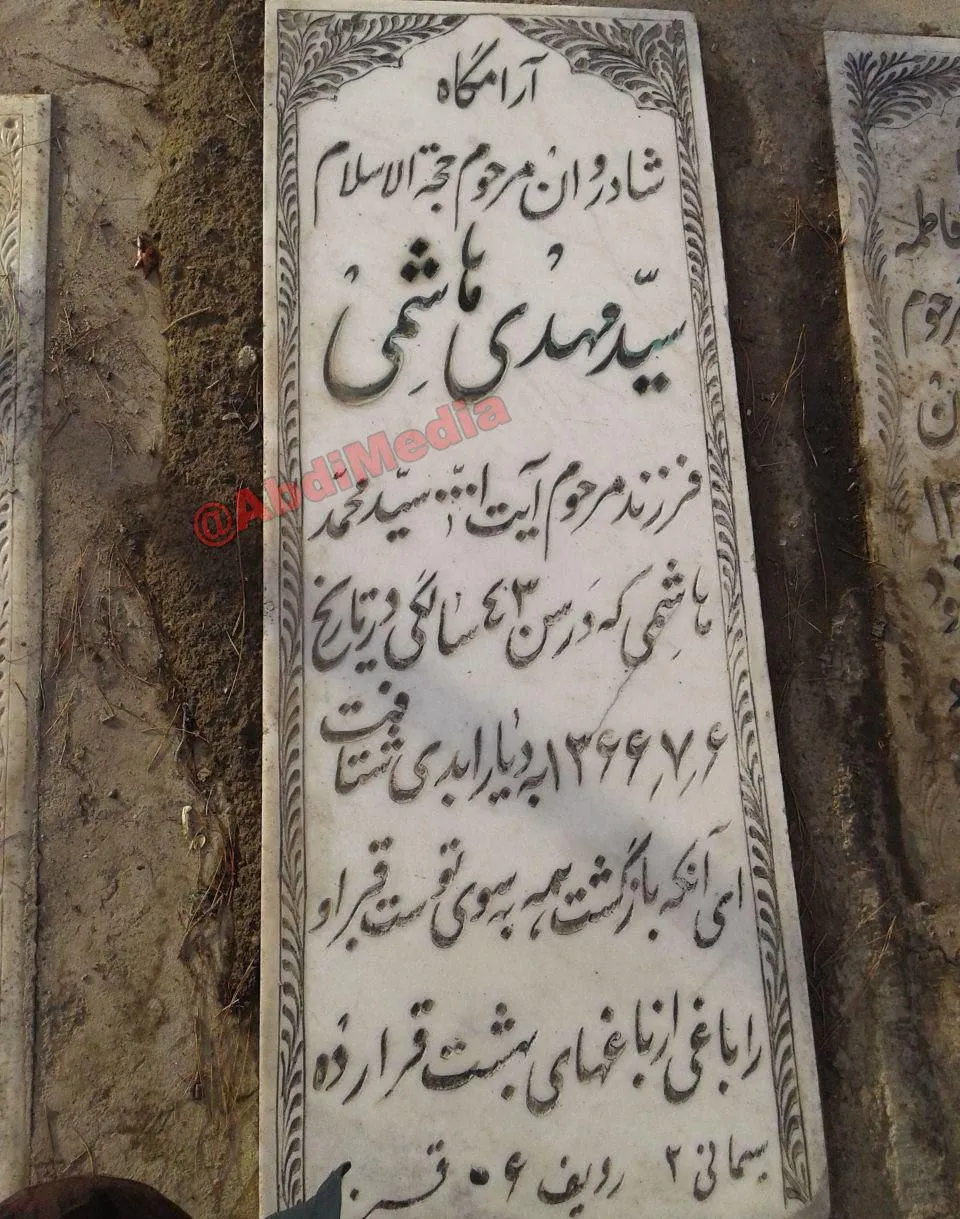 آرامگاه
شادروان مرحوم حجة الاسلام
سیّد مهدی هاشمی
فرزند مرحوم آیت الله سیّد محمّد
هاشمی که در سن ٤٣ سالگی در تاریخ
۱۳۶۶٫۷٫۶ به دیار ابدی شتافت
ای آنکه بازگشت همه به سوی توست قبر او
را باغی از باغهای بهشت قرار ده
سمانی ۲ ردیف ۶۰
@AbdiMedia
فاطمه